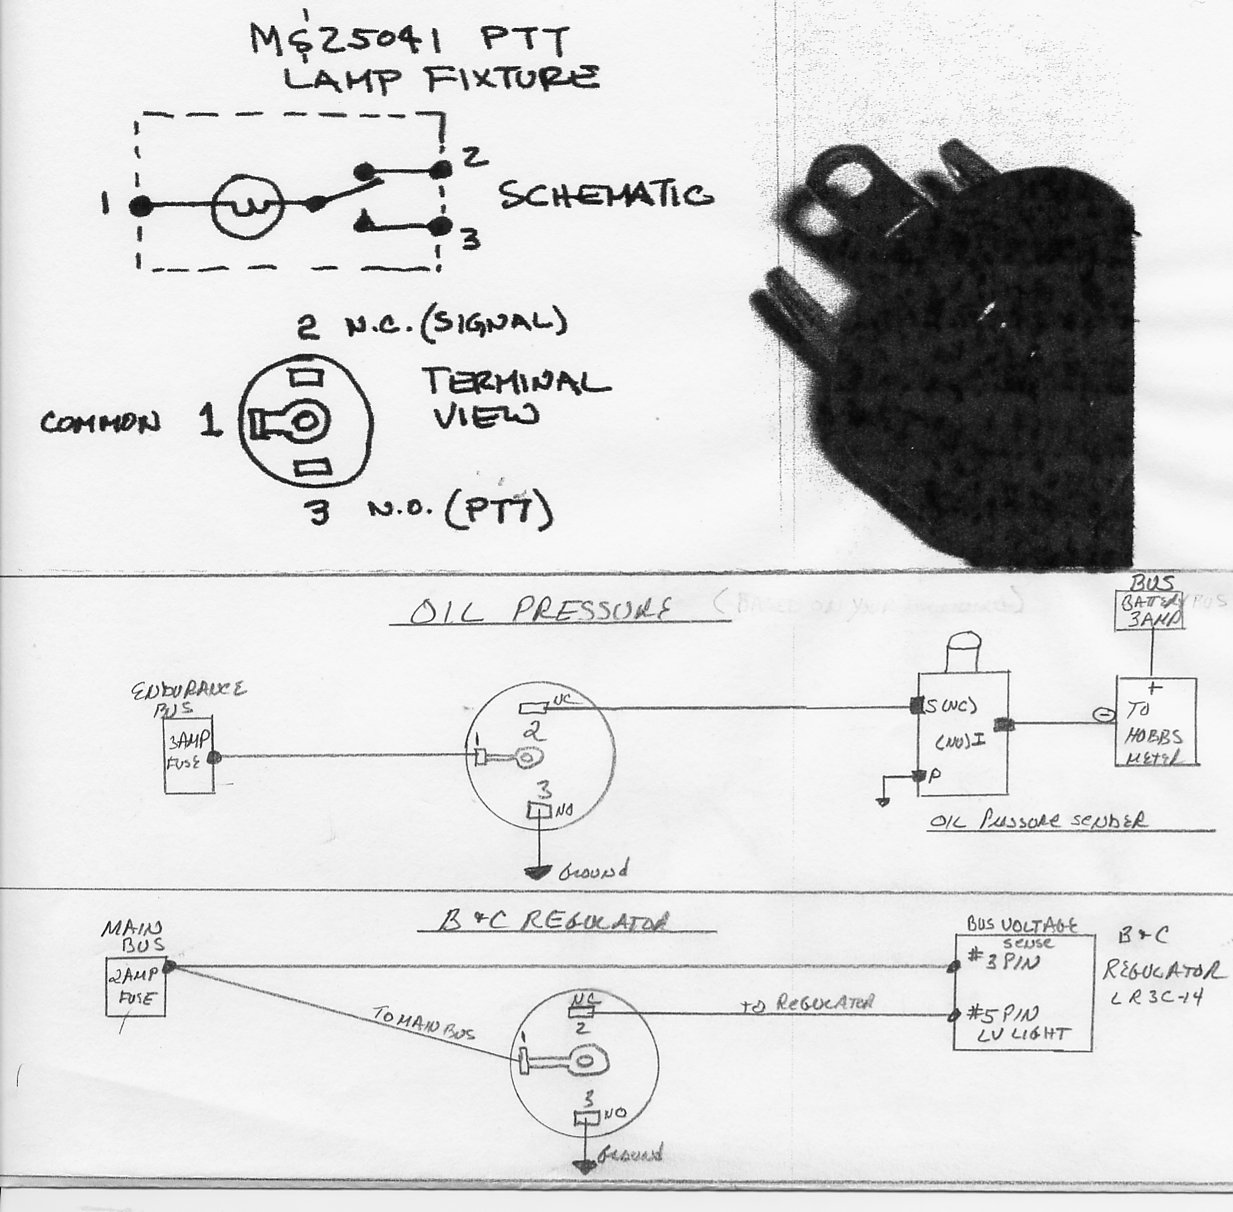 MS25041 PTT
LAMP FIXTURE
1
2
3
SCHEMATIC
2 N.C. (SIGNAL)
TERMINAL
VIEW
COMMON 1
3 N.O. (PTT)
OIL PRESSURE (BASED ON YOUR
BUS
BATTERY BUS
3AMP
ENDURANCE
BUS
3AMP
FUSE
1
NC
2
3
NO
Ground
S(NC)
(NO) I
P
OIL PRSSURE SENDER
-
+
TO
HOBBS
METER
B & C REGULATOR
MAIN
BUS
2AMP
FUSE
TO MAIN BUS
NC
2
3
NO
Ground
TO REGULATOR
BUS VOLTAGE
SENSE
#3 PIN
#5 PIN
LV LIGHT
B & C
REGULATOR
LR3C-14